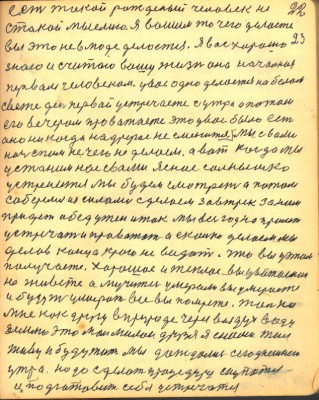 Есть такой рожденый человек не 22
такой мыслию. Я вашим то чего делаете
вы это не в моде делается. Я вас хорошо 23
знаю и считаю вашу жизнь она начатая
первым человеком. у вас одно делается на белом
свете день первый встречаете с утра а потом
его вечером провожаете это у вас было есть
оно никогда на другое не сменится. Мы с вами
ночь спим не чего не делаем. а вот когда мы
устанем нас с вами ясное солнышко
встренется мы будем смотреть а потом
соберемся силами сделаем завтрек за ним
придет обед ужен и так мы все годно
встречали провожали а сколько делаем мы
делов конца краю не видать. Это вы
получаете. Хорошое и теплое вы
но живете а мучитесь умерали вы умераете
и будете умерать все вы помрете. Только
мне как другу в природе через воздух воду
землю это мои милые друзья я с ними жил
живу и будут жить мы дождались сегодняшнего
утра. надо сделать процедуру
и подготовить себя встречать